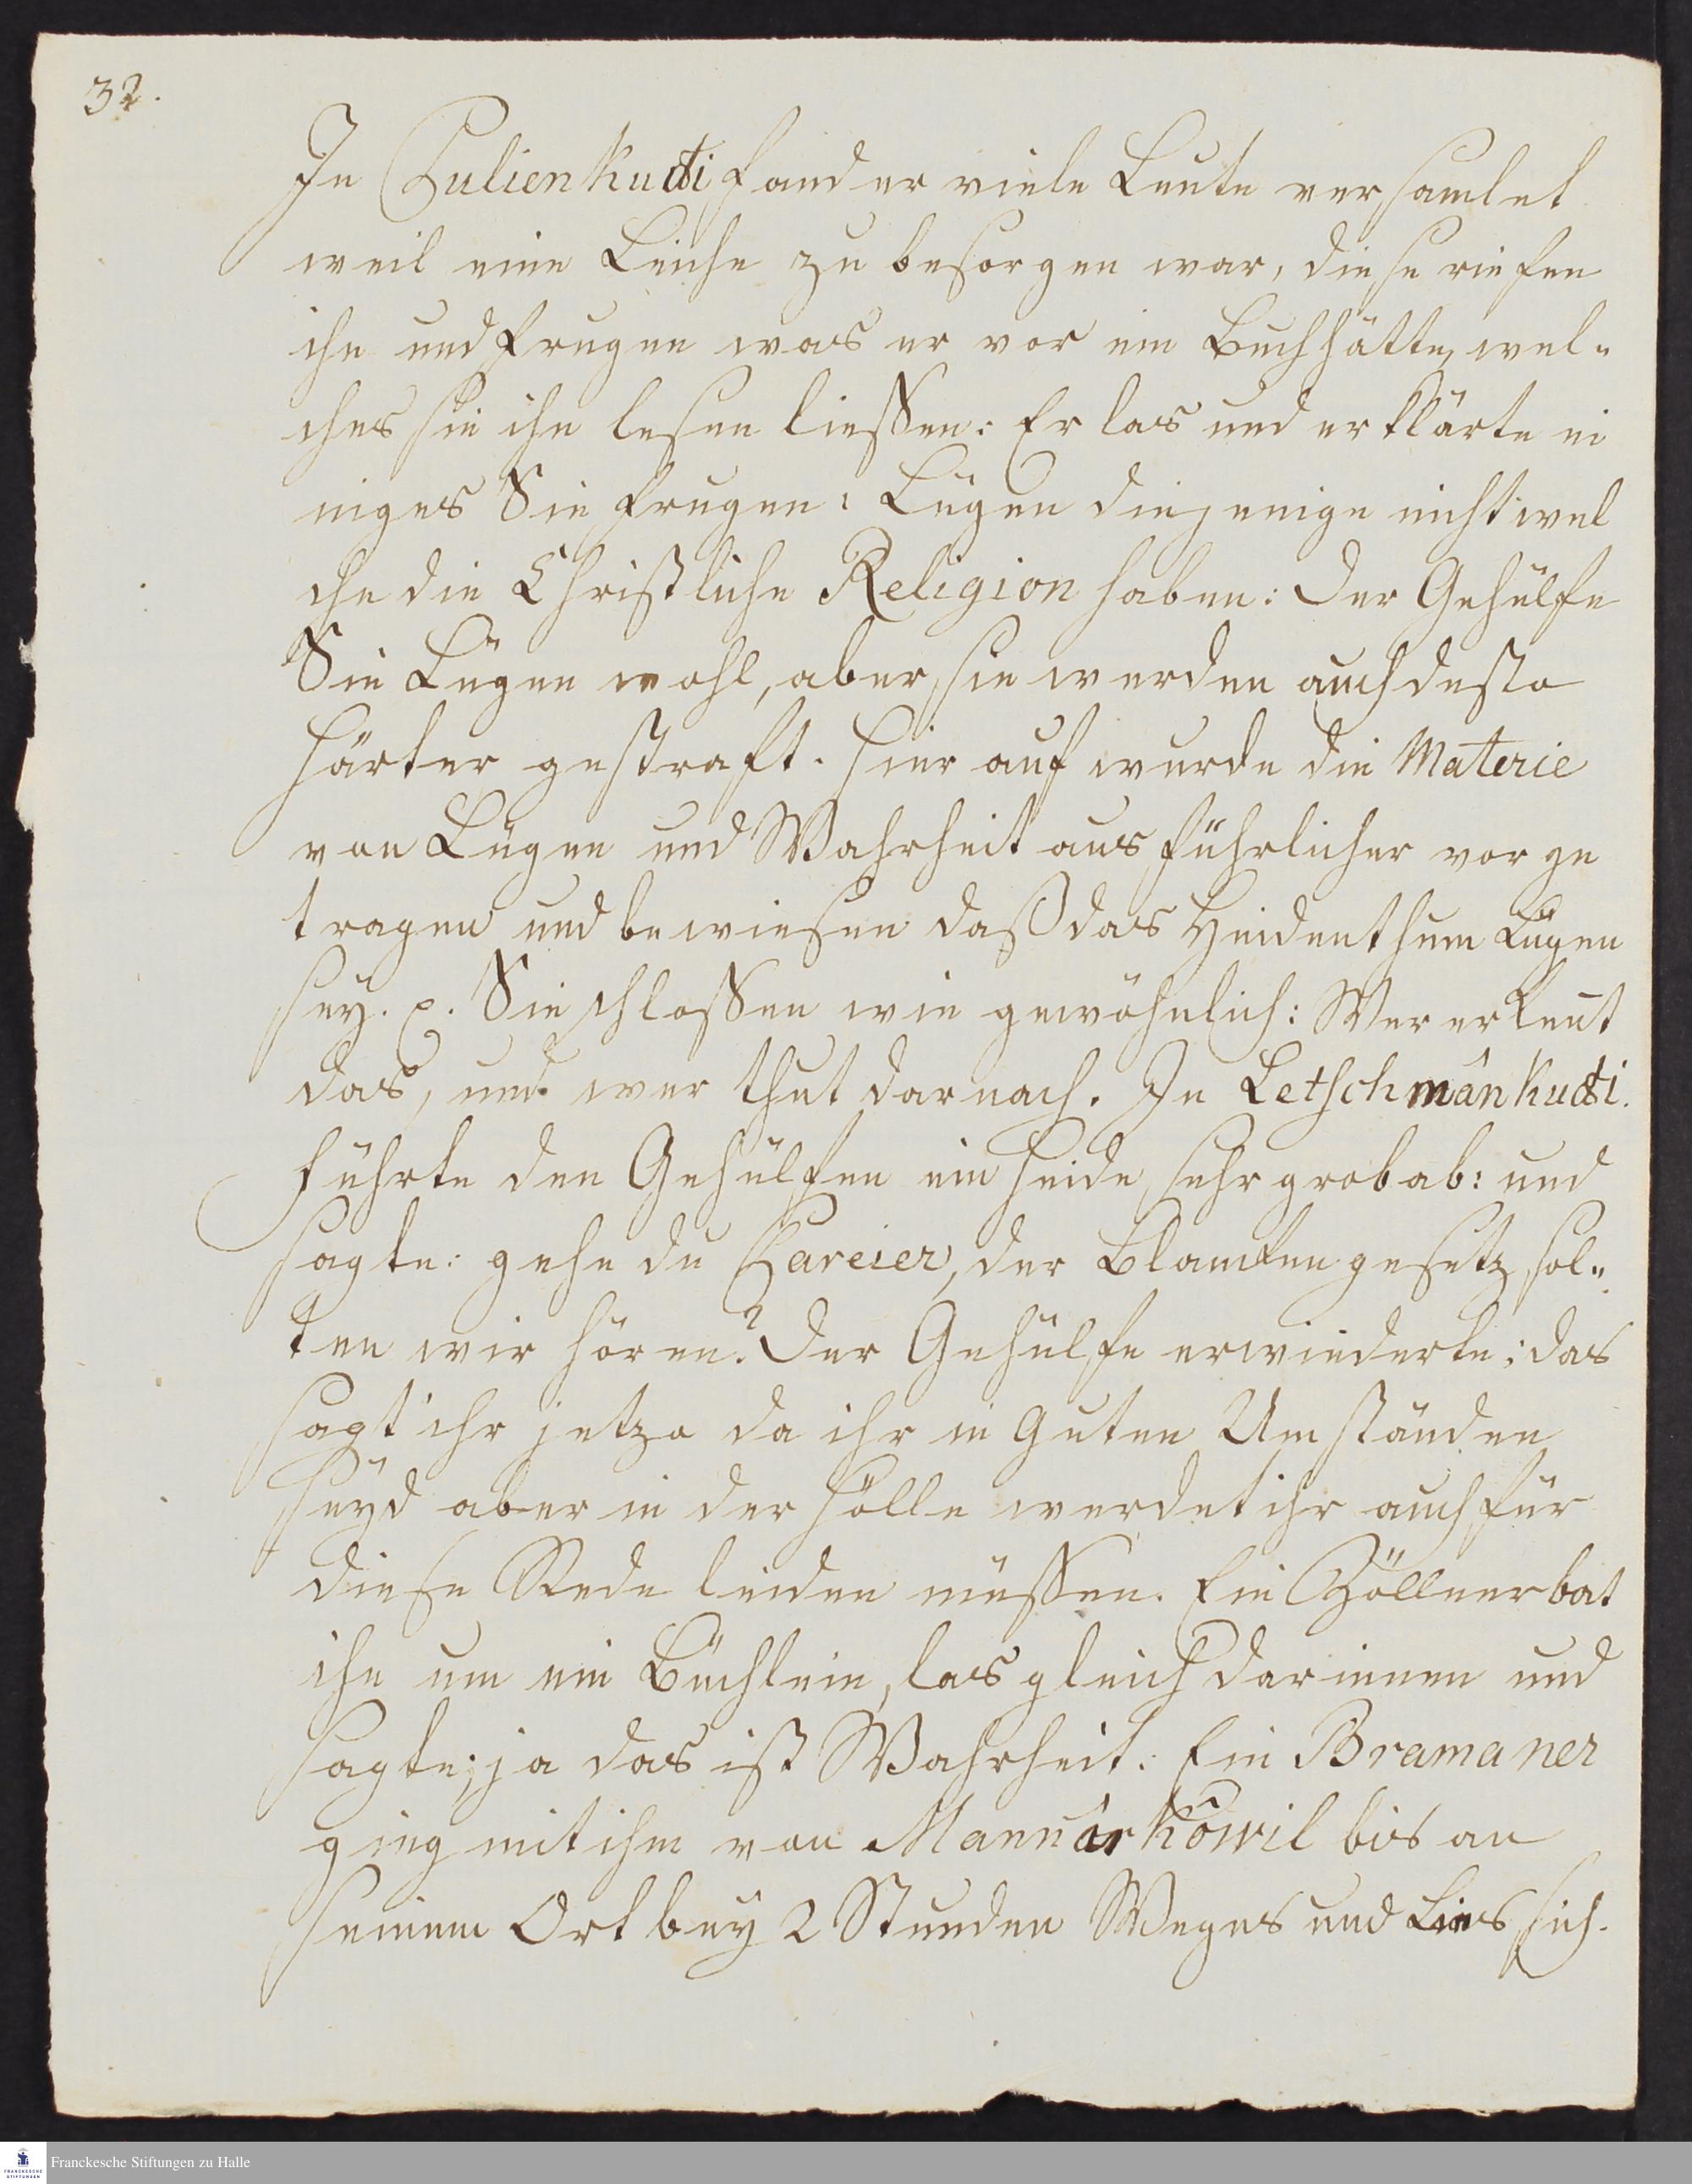 32.
In Pulienkudi fand er viele Leute versamlet
weil eine Leiche zu besorgen war, diese riefen
ihn und frugen was er vor ein Buch hätte, wel=
ches sie ihn lesen liessen: Er las und erklärte ei
niges Sie frugen: Lügen diejenige nicht wel
che die Christliche Religion haben: Der Gehülfe
Sie Lügen wohl, aber sie werden auch desto
härter gestraft. Hier auf wurde die Materie
von Lügen und Wahrheit ausführlicher vor ge
tragen und bewiesen daß das Heidenthum Lügen
sey. p. Sie schlossen wie gewöhnlich: Wer erkent
das, und wer thut darnach. In Letschmânkudi.
führte den Gehülfen ein Heide sehr grob ab: und
sagte: gehe du Pareier, der Blancken gesetz sol=
ten wir hören? Der Gehülfe erwiederte: das
sagt ihr jetzo da ihr in Guten Umständen
seyd aber in der Hölle werdet ihr auch für
diese Rede leiden müssen. Ein Zöllner bat
ihn um ein Büchlein, las gleich darinnen und
sagte; ja das ist Wahrheit: Ein Bramaner
gieng mit ihm von Mannârkôwil bis an
seinem Ort bey 2 Stunden Weges und Lies sich.
FRANCKESCHE STIFTUNGEN
Franckesche Stiftungen zu Halle